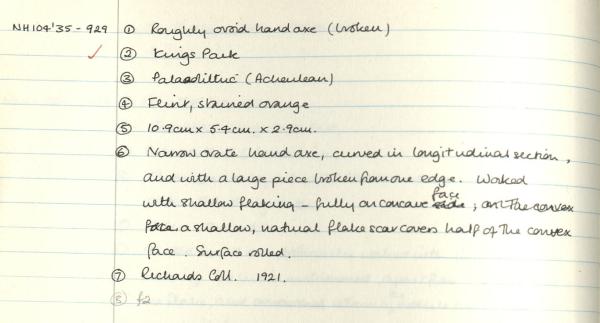 NH104'35-929 ① Roughly ovoid handaxe (broken)
② Kings Park
③ Palaeolithic (Acheulean)
④ Flint, stained orange
⑤ 10.9cm x 5.4cm. x 2.9cm.
⑥ Narrow ovate hand axe, curved in longitudinal section,
and with a large piece broken from one edge. Worked
with shallow flaking - fully on concave face; on the convex
a shallow, natural flake scar covers half of the convex
face. Surface rolled.
⑦ Richards Coll. 1921.
⑧ f2